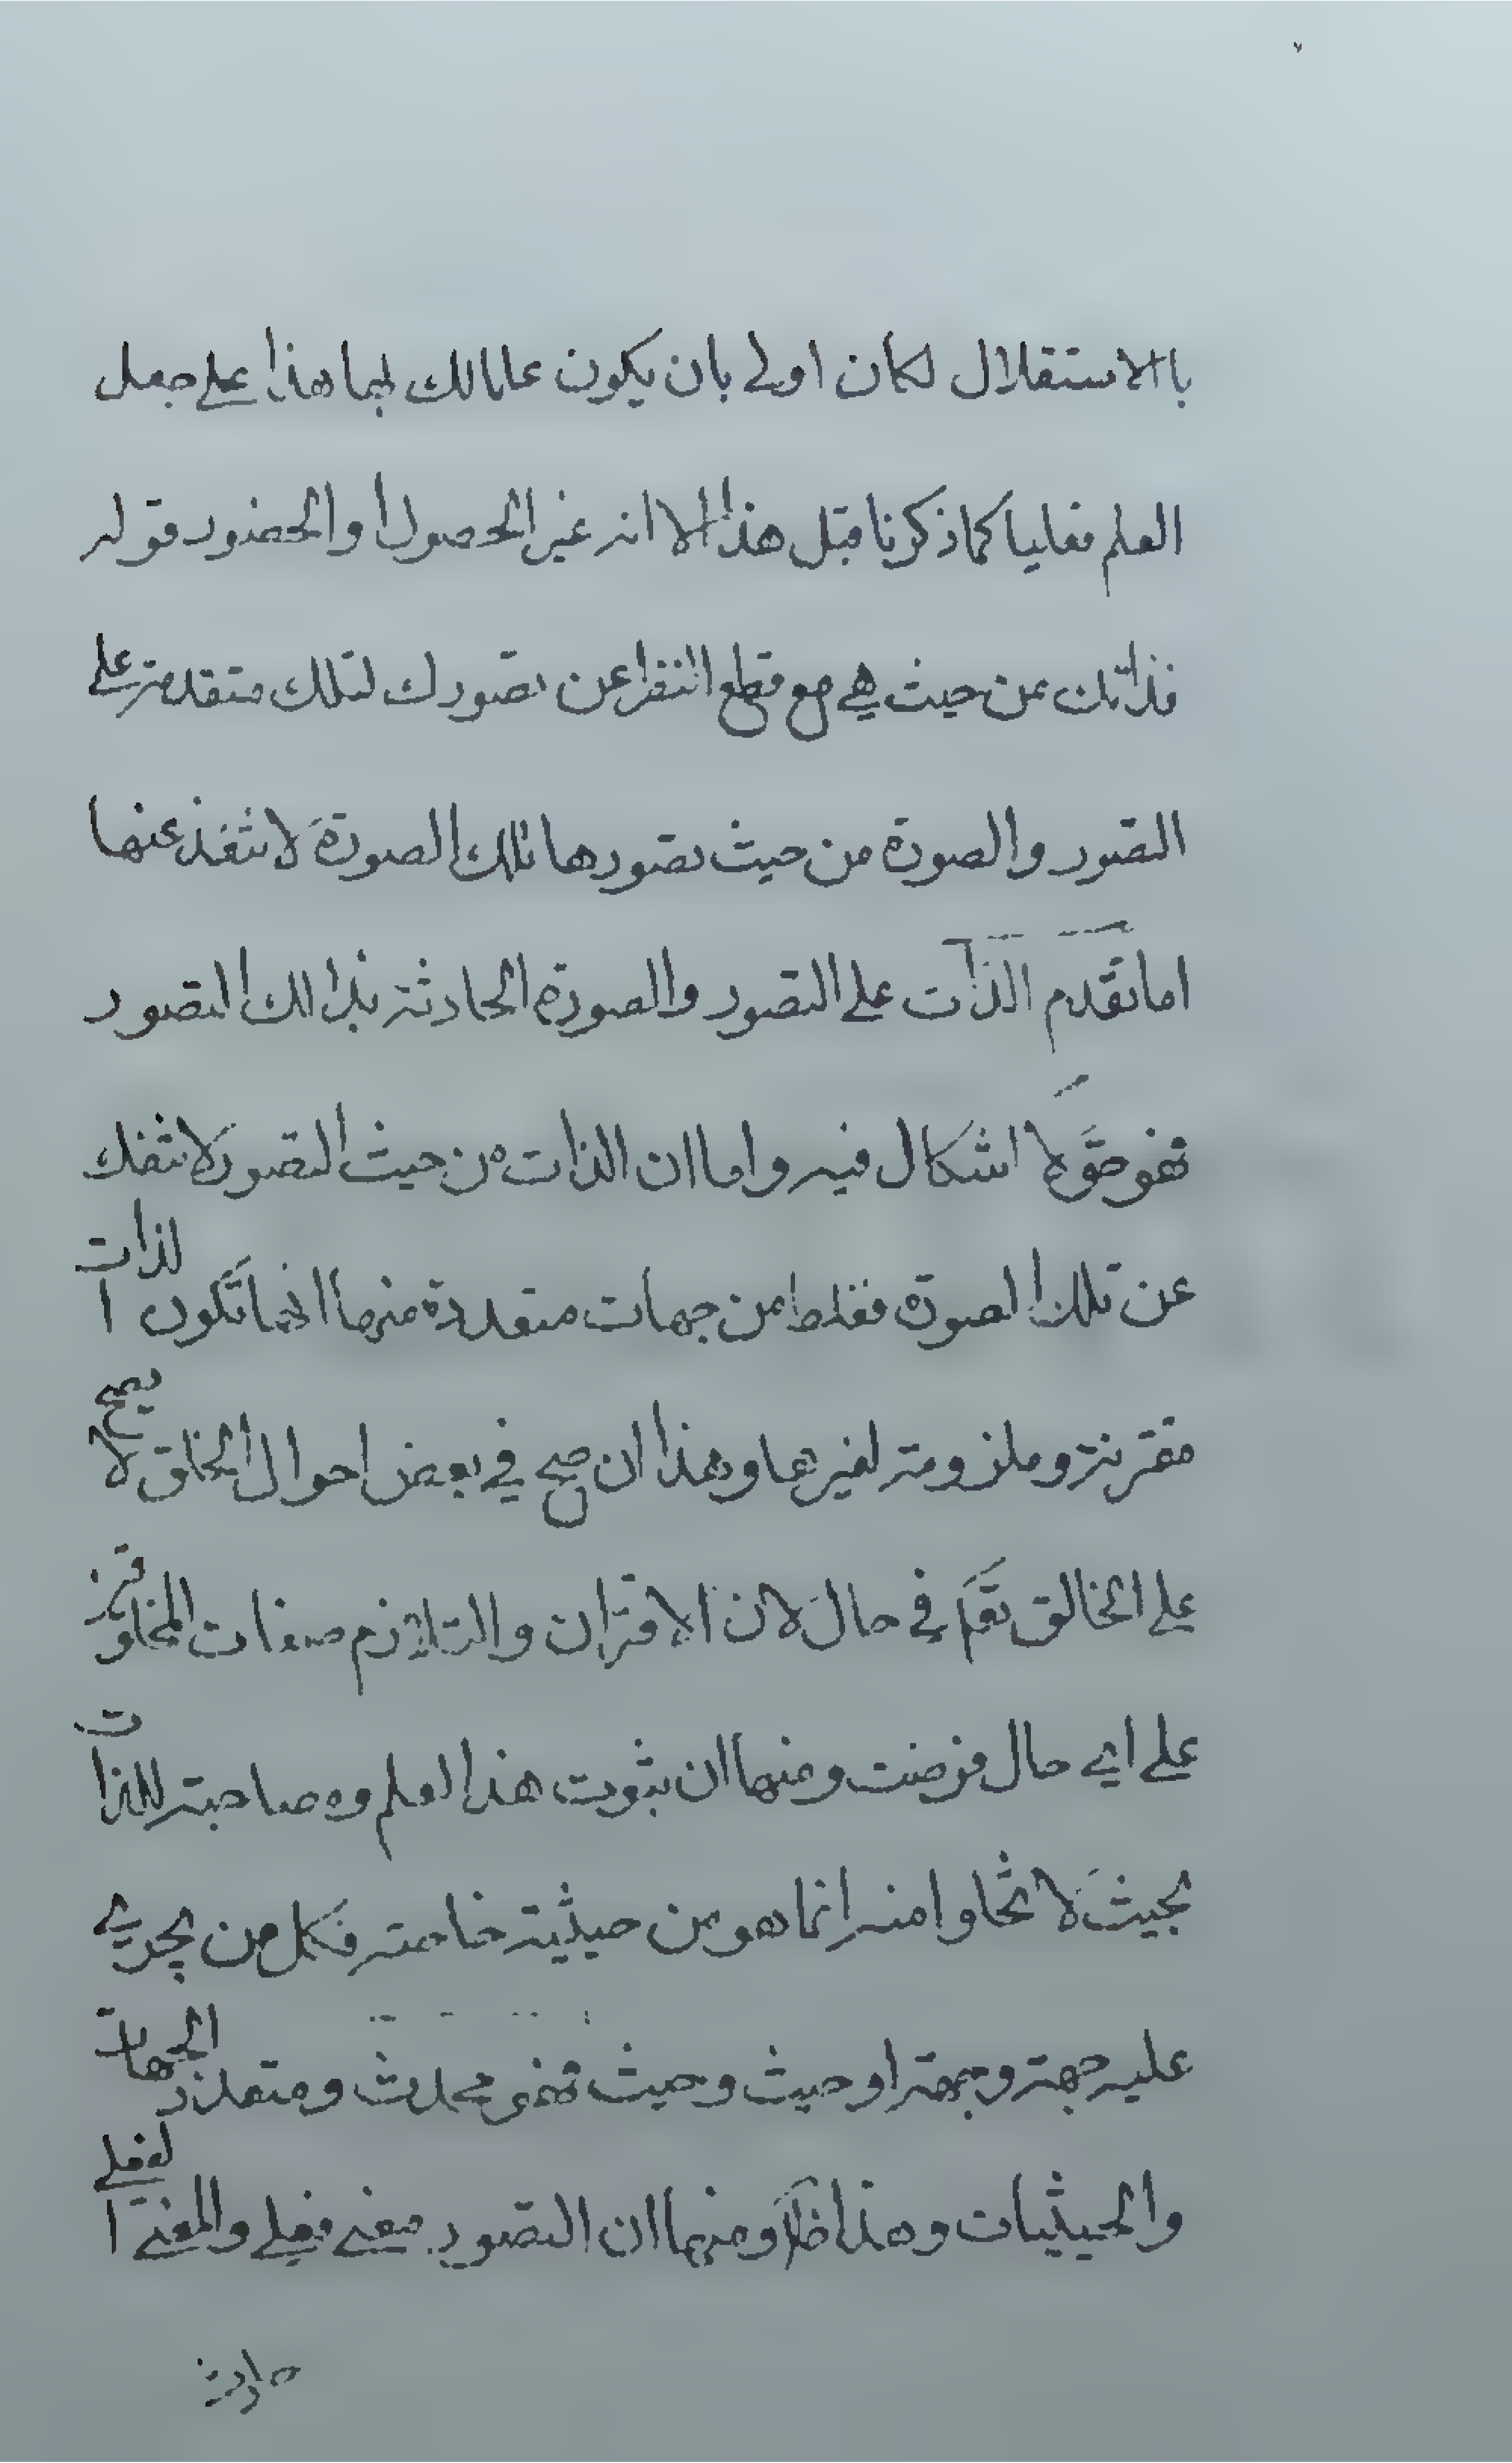 بالاستقلال لكان اولى بان يكون عالمالك بهما هذا على جعل
العلم فعليا كما ذكرنا قبل هذا الا انه غير الحصول والحضور قوله
فذاتك من حيث هي مع قطع النظر عن تصورك لتلك متقدمة على
التصور والصورة من حيث تصورها تلك الصورة لا تنفك عنها
اما تقدم الذات على التصور والصورة الحادثة بذالك التصور
فهو حق لا اشكال فيه واما ان الذات من حيث التصور لا تنفك
عن تلك الصورة فغلط من جهات متعددة منها انها تكون الذات
مقترنة وملزومة لغيرها وهذا ان صح في بعض احوال الخلق لا يصح
على الخالق تعم في حال لان الاقتران والتلازم صفات المخلوقة
على اي حال فرضت ومنها ان ثبوت هذا العلم وه صاحبة للذات
بحيث لا تخلوا منه انما هو من حيثية خاصة فكل من يجري
عليه جهة وجهة او حيث وحيث فهو محدث ومتعدد الجهات
والحيثيات وهذا ظ ومنها ان التصور معنى فعلي والمعنى الفعلي
حادث